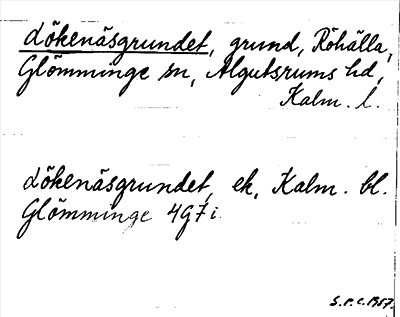 Lökenäsgrundet, grund, Röhälla,
Glömminge sn, Algutsrums hd,
Kalm. l.
Lökenäsgrundet, ek. Kalm. bl.
Glömminge 4G7i
S.P.C. 1957.